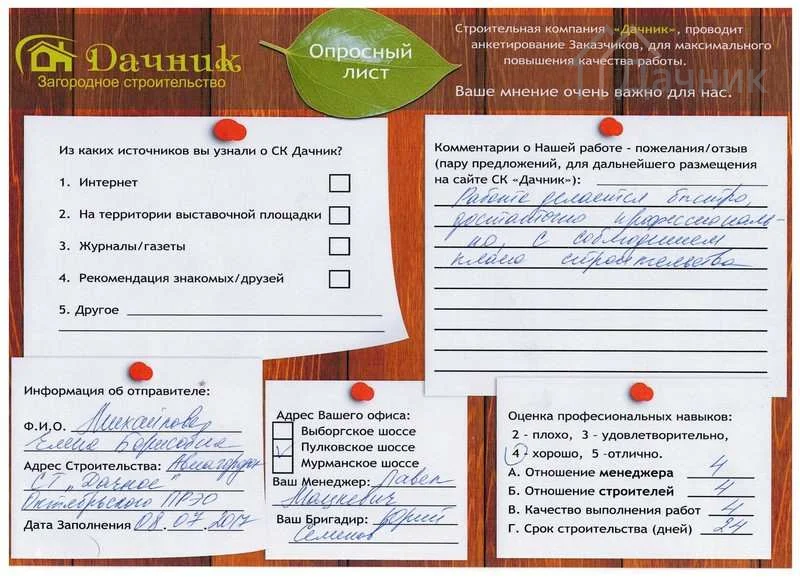 Дачник
Загородное строительство
Опросный
лист
Строительная компания «Дачник», проводит
анкетирование Заказчиков, для максимального
повышения качества работы.
Ваше мнение очень важно для нас.
Дачник
Из каких источников вы узнали о СК Дачник?
1. Интернет
2. На территории выставочной площадки
3. Журналы/газеты
4. Рекомендация знакомых/друзей
5. Другое
Комментарии о Нашей работе - пожелания/отзыв
(пару предложений, для дальнейшего размещения
на сайте СК «Дачник»):
Работа делается быстро,
достаточно профессиональ-
но, с соблюдением
плана строительства
Информация об отправителе:
Ф.И.О. Михайлова
Елена Борисовна
Адрес Строительства:
СТ "Дачное"
Октябрьского ПРЭО
Дата Заполнения 08.07.2017
Адрес Вашего офиса:
Выборгское шоссе
Пулковское шоссе
Мурманское шоссе
Ваш Менеджер: Павел
Мацкевич
Ваш Бригадир: Юрий
Семенов
Оценка професиональных навыков:
2 - плохо, 3 - удовлетворительно,
4 - хорошо, 5 -отлично.
А. Отношение менеджера 4
Б. Отношение строителей 4
В. Качество выполнения работ 4
Г. Срок строительства (дней) 24